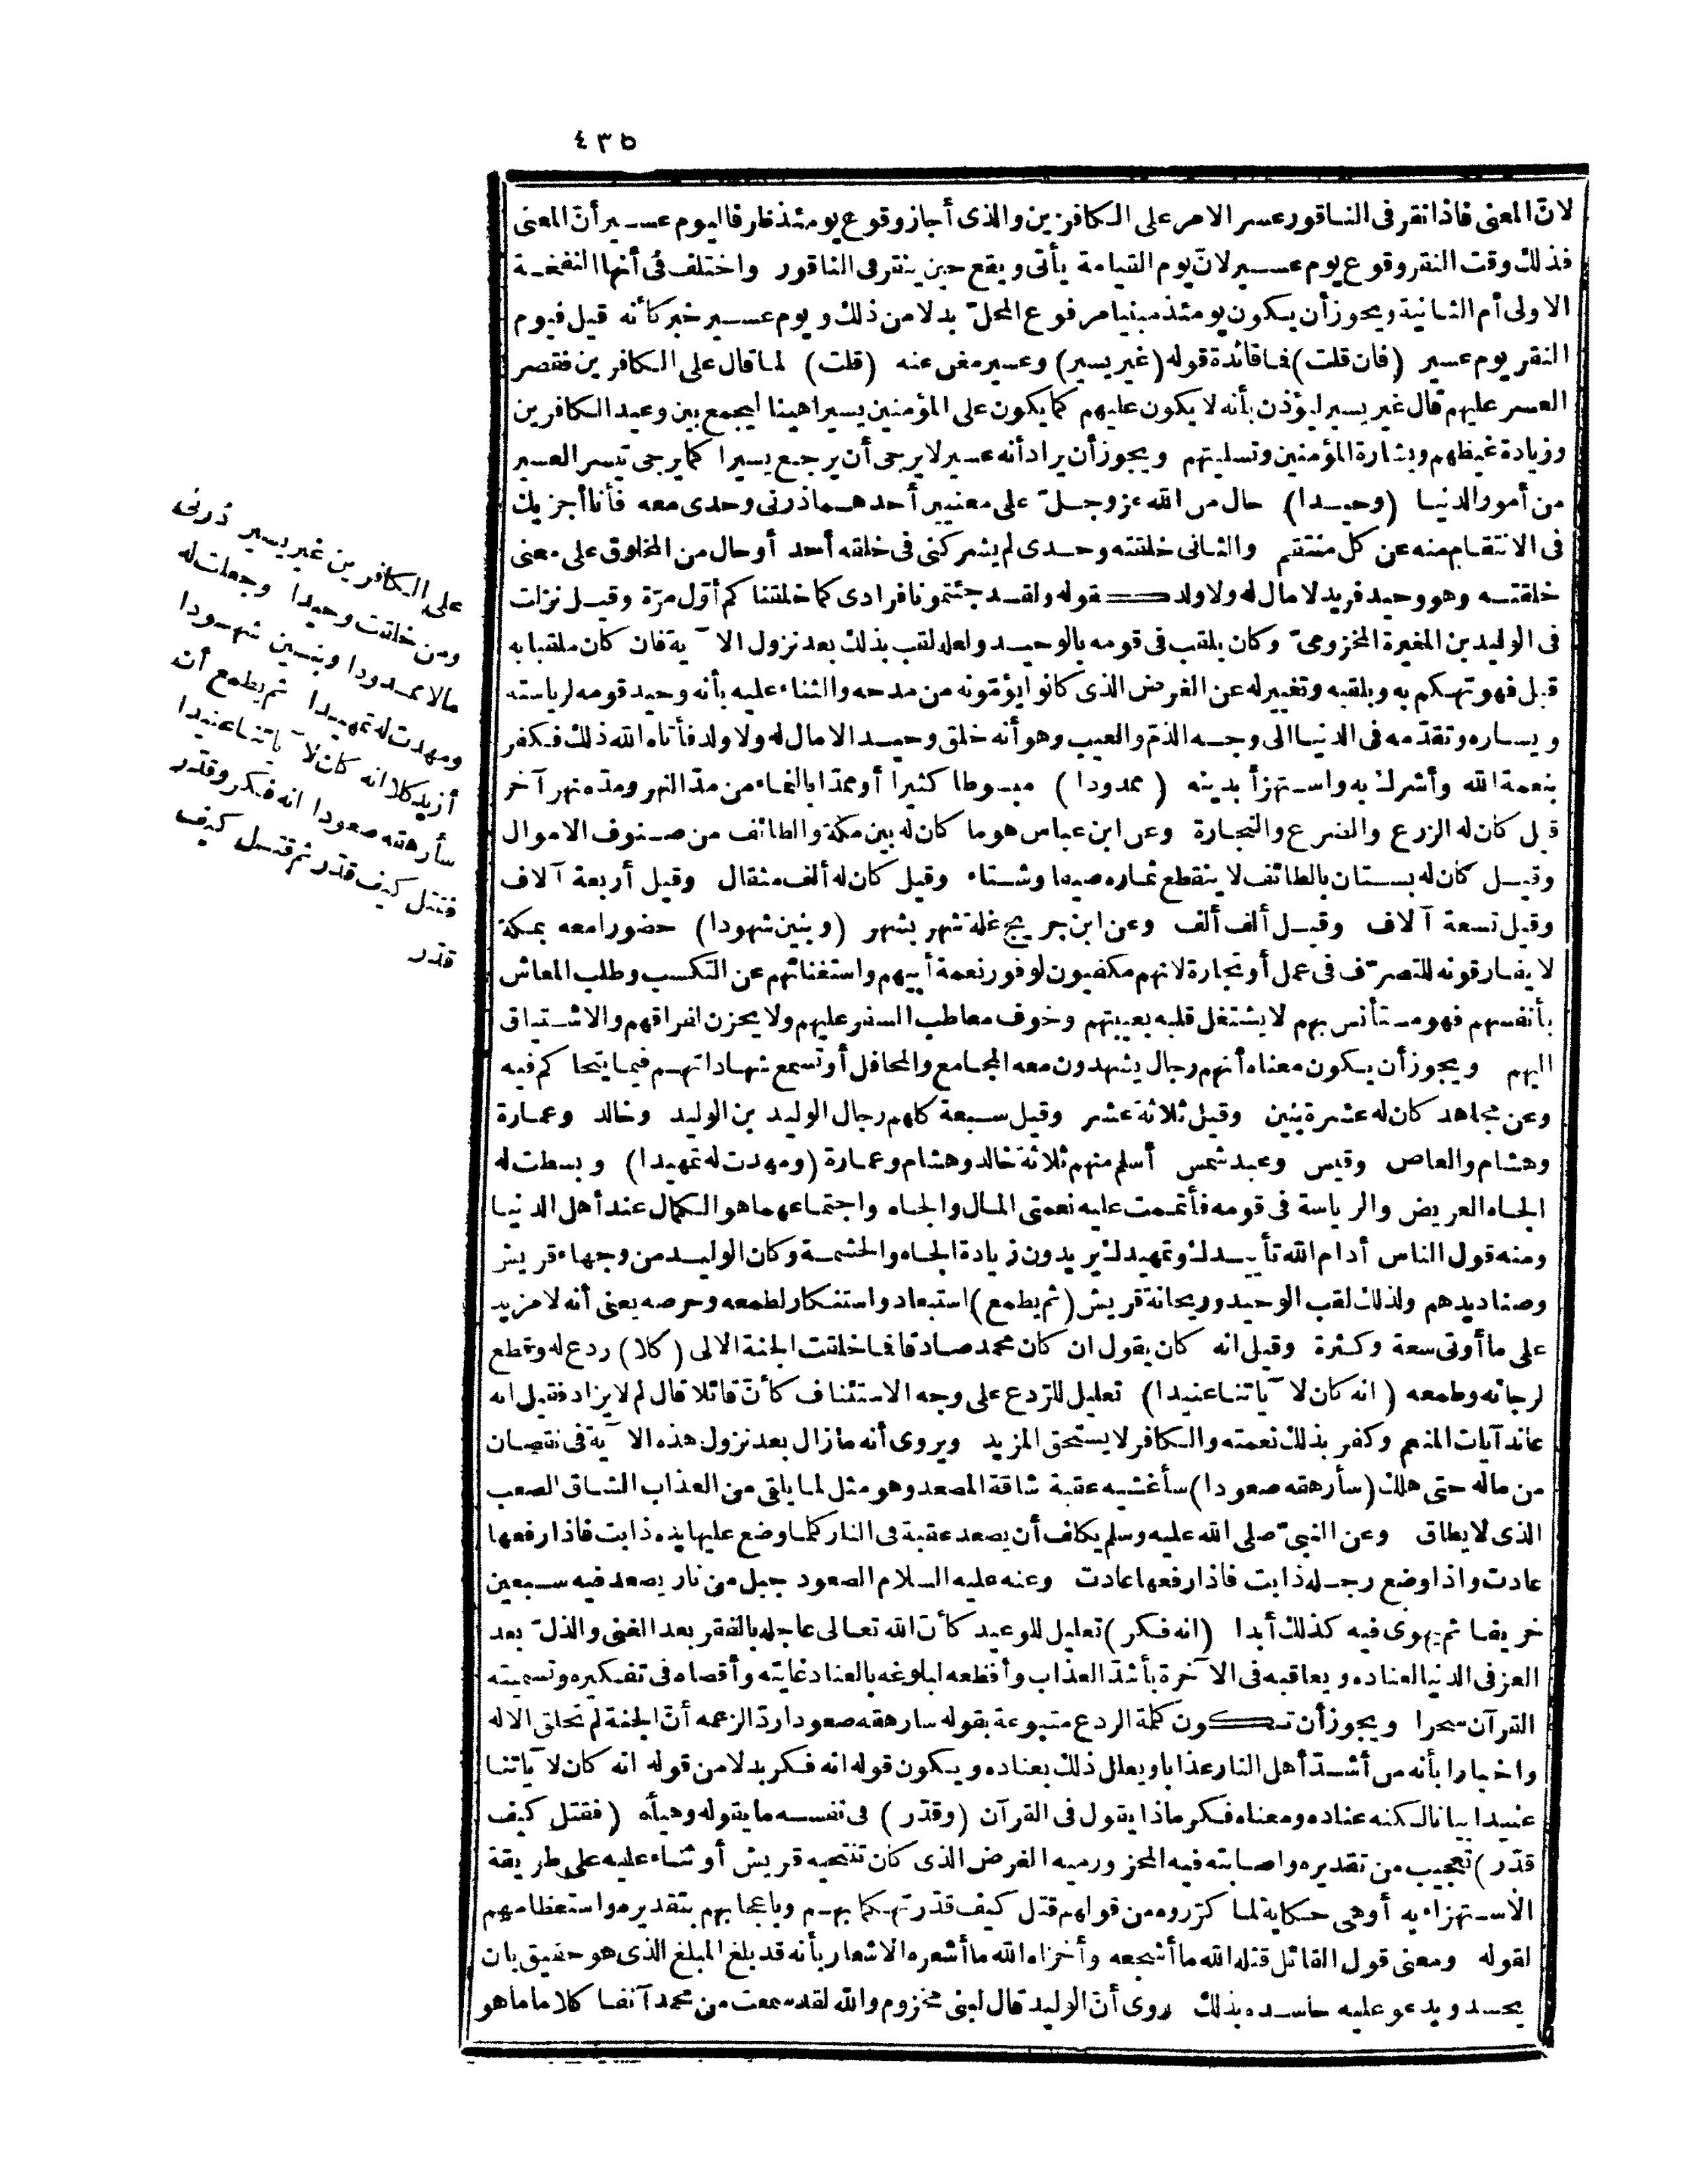 ٤٣٥
لانّ المعنى فاذا نقر فى الناقور عسر الامر على الكافرين والذى أجاز وقوع يومئذ ظرفا ليوم عسير أنّ المعنى
فذلك وقت النقر وقوع يوم عسير لانّ يوم القيامة يأتى ويقع حين ينقر فى الناقور واختلف فى أنها النفخة
الاولى أم الثانية ويجوز أن يكون يومئذ مبنيا مرفوع المحلّ بدلا من ذلك ويوم عسير خبر كأنه قيل فيوم
النقر يوم عسير (فان قلت) فما فائدة قوله (غير يسير) وعسير مغن عنه (قلت) لما قال على الكافرين فقصر
العسر عليهم قال غير يسير ليؤذن بأنه لا يكون عليهم كما يكون على المؤمنين يسيرا هينا ليجمع بين وعيد الكافرين
وزيادة غيظهم وبشارة المؤمنين وتسليتهم ويجوز أن يراد أنه عسير لا يرجى أن يرجع يسيرا كما يرجى تيسر العسير
من أمور الدنيا (وحيدا) حال من الله عز وجلّ على معنيين أحدهما ذرنى وحدى معه فأنا أجزيك
فى الانتقام منه عن كل منتقم والثانى خلقته وحدى لم يشركنى فى خلقه أحد أو حال من المخلوق على معنى
خلقته وهو وحيد فريد لا مال له ولا ولد كقوله ولقد جئتمونا فرادى كما خلقنا كم أوّل مرّة وقيل نزلت
فى الوليد بن المغيرة المخزومىّ وكان يلقب فى قومه بالوحيد ولعله لقب بذلك بعد نزول الآية فان كان ملقبا به
قبل فهو تهكم به وبلقبه وتغيير له عن الغرض الذى كانوا يؤمّونه من مدحه والثناء عليه بأنه وحيد قومه لرياسته
ويساره وتقدّمه فى الدنيا الى وجه الذمّ والعيب وهو أنه خلق وحيدا لا مال له ولا ولد فأتاه الله ذلك فكفر
بنعمة الله وأشرك به واستهزأ بدينه (ممدودا) مبسوطا كثيرا أو ممدّا بالنماء من مدّ النهر ومدّه نهر آخر
قيل كان له الزرع والضرع والتجارة وعن ابن عباس هو ما كان له بين مكة والطائف من صنوف الاموال
وقيل كان له بستان بالطائف لا ينقطع ثماره صيفا وشتاء وقيل كان له ألف مثقال وقيل أربعة آلاف
وقيل تسعة آلاف وقيل ألف ألف وعن ابن جريج غلة شهر بشهر (وبنين شهودا) حضورا معه بمكة
لا يفارقونه للتصرّف فى عمل أو تجارة لانهم مكفيون لوفور نعمة أبيهم واستغنائهم عن التكسب وطلب المعاش
بأنفسهم فهو مستأنس بهم لا يشتغل قلبه بغيبتهم وخوف معاطب السفر عليهم ولا يحزن لفراقهم والاشتياق
اليهم ويجوز أن يكون معناه أنهم رجال يشهدون معه المجامع والمحافل أو تسمع شهاداتهم فيما يتحاكم فيه
وعن مجاهد كان له عشرة بنين وقيل ثلاثة عشر وقيل سبعة كلهم رجال الوليد بن الوليد وخالد وعمارة
وهشام والعاص وقيس وعبد شمس أسلم منهم ثلاثة خالد وهشام وعمارة (ومهدت له تمهيدا) وبسطت له
الجاه العريض والرياسة فى قومه فأتممت عليه نعمتى المال والجاه واجتماعهما هو الكمال عند أهل الدنيا
ومنه قول الناس أدام الله تأييدك وتمهيدك يريدون زيادة الجاه والحشمة وكان الوليد من وجهاء قريش
وصناديدهم ولذلك لقب الوحيد وريحانة قريش (ثم يطمع) استبعاد واستنكار لطمعه وحرصه يعنى أنه لا مزيد
على ما أوتى سعة وكثرة وقيل انه كان يقول ان كان محمد صادقا فما خلقت الجنة الا لى (كلا) ردع له وقطع
لرجائه وطمعه (انه كان لآياتنا عنيدا) تعليل للرّدع على وجه الاستئناف كأنّ قائلا قال لم لا يزاد فقيل انه
عاند آيات المنعم وكفر بذلك نعمته والكافر لا يستحق المزيد ويروى أنه ما زال بعد نزول هذه الآية فى نقصان
من ماله حتى هلك (سأرهقه صعودا) سأغشيه عقبة شاقة المصعد وهو مثل لما يلقى من العذاب الشاق الصعب
الذى لا يطاق وعن النبىّ صلى الله عليه وسلم يكلف أن يصعد عقبة فى النار كلما وضع عليها يده ذابت فاذا رفعها
عادت واذا وضع رجله ذابت فاذا رفعها عادت وعنه عليه السلام الصعود جبل من نار يصعد فيه سبعين
خريفا ثم يهوى فيه كذلك أبدا (انه فكر) تعليل للوعيد كأنّ الله تعالى عاجله بالفقر بعد الغنى والذلّ بعد
العز فى الدنيا لعناده ويعاقبه فى الآخرة بأشدّ العذاب وأفظعه لبلوغه بالعناد غايته وأقصاه فى تفكيره وتسميته
القرآن سحرا ويجوز أن تكون كلمة الردع متبوعة بقوله سأرهقه صعودا ردّا لزعمه أنّ الجنة لم تخلق الا له
واخبارا بأنه من أشدّ أهل النار عذابا ويعلل ذلك بعناده ويكون قوله انه فكر بدلا من قوله انه كان لآياتنا
عنيدا بيانا لكنه عناده ومعناه فكر ماذا يقول فى القرآن (وقدّر) فى نفسه ما يقوله وهيأه (فقتل كيف
قدّر) تعجيب من تقديره واصابته فيه المحز ورميه الغرض الذى كان تنتحيه قريش أو ثناء عليه على طريقة
الاستهزاء به أو هى حكاية لما كرّروه من قولهم قتل كيف قدّر تهكما بهم وباعجابهم بتقديره واستعظامهم
لقوله ومعنى قول القائل قتله الله ما أشجعه وأخزاه الله ما أشعره الاشعار بأنه قد بلغ المبلغ الذى هو حقيق بان
يحسد ويدعو عليه حاسده بذلك روى أنّ الوليد قال لبنى مخزوم والله لقد سمعت من محمد آنفا كلاما ما هو
على الكافرين غير يسير ذرنى
ومن خلقت وحيدا وجعلت له
مالا ممدودا وبنين شهودا
ومهدت له تمهيدا ثم يطمع أن
أزيد كلا انه كان لآياتنا عنيدا
سأرهقه صعودا انه فكر وقدّر
فقتل كيف قدّر ثم قتل كيف
قدّر